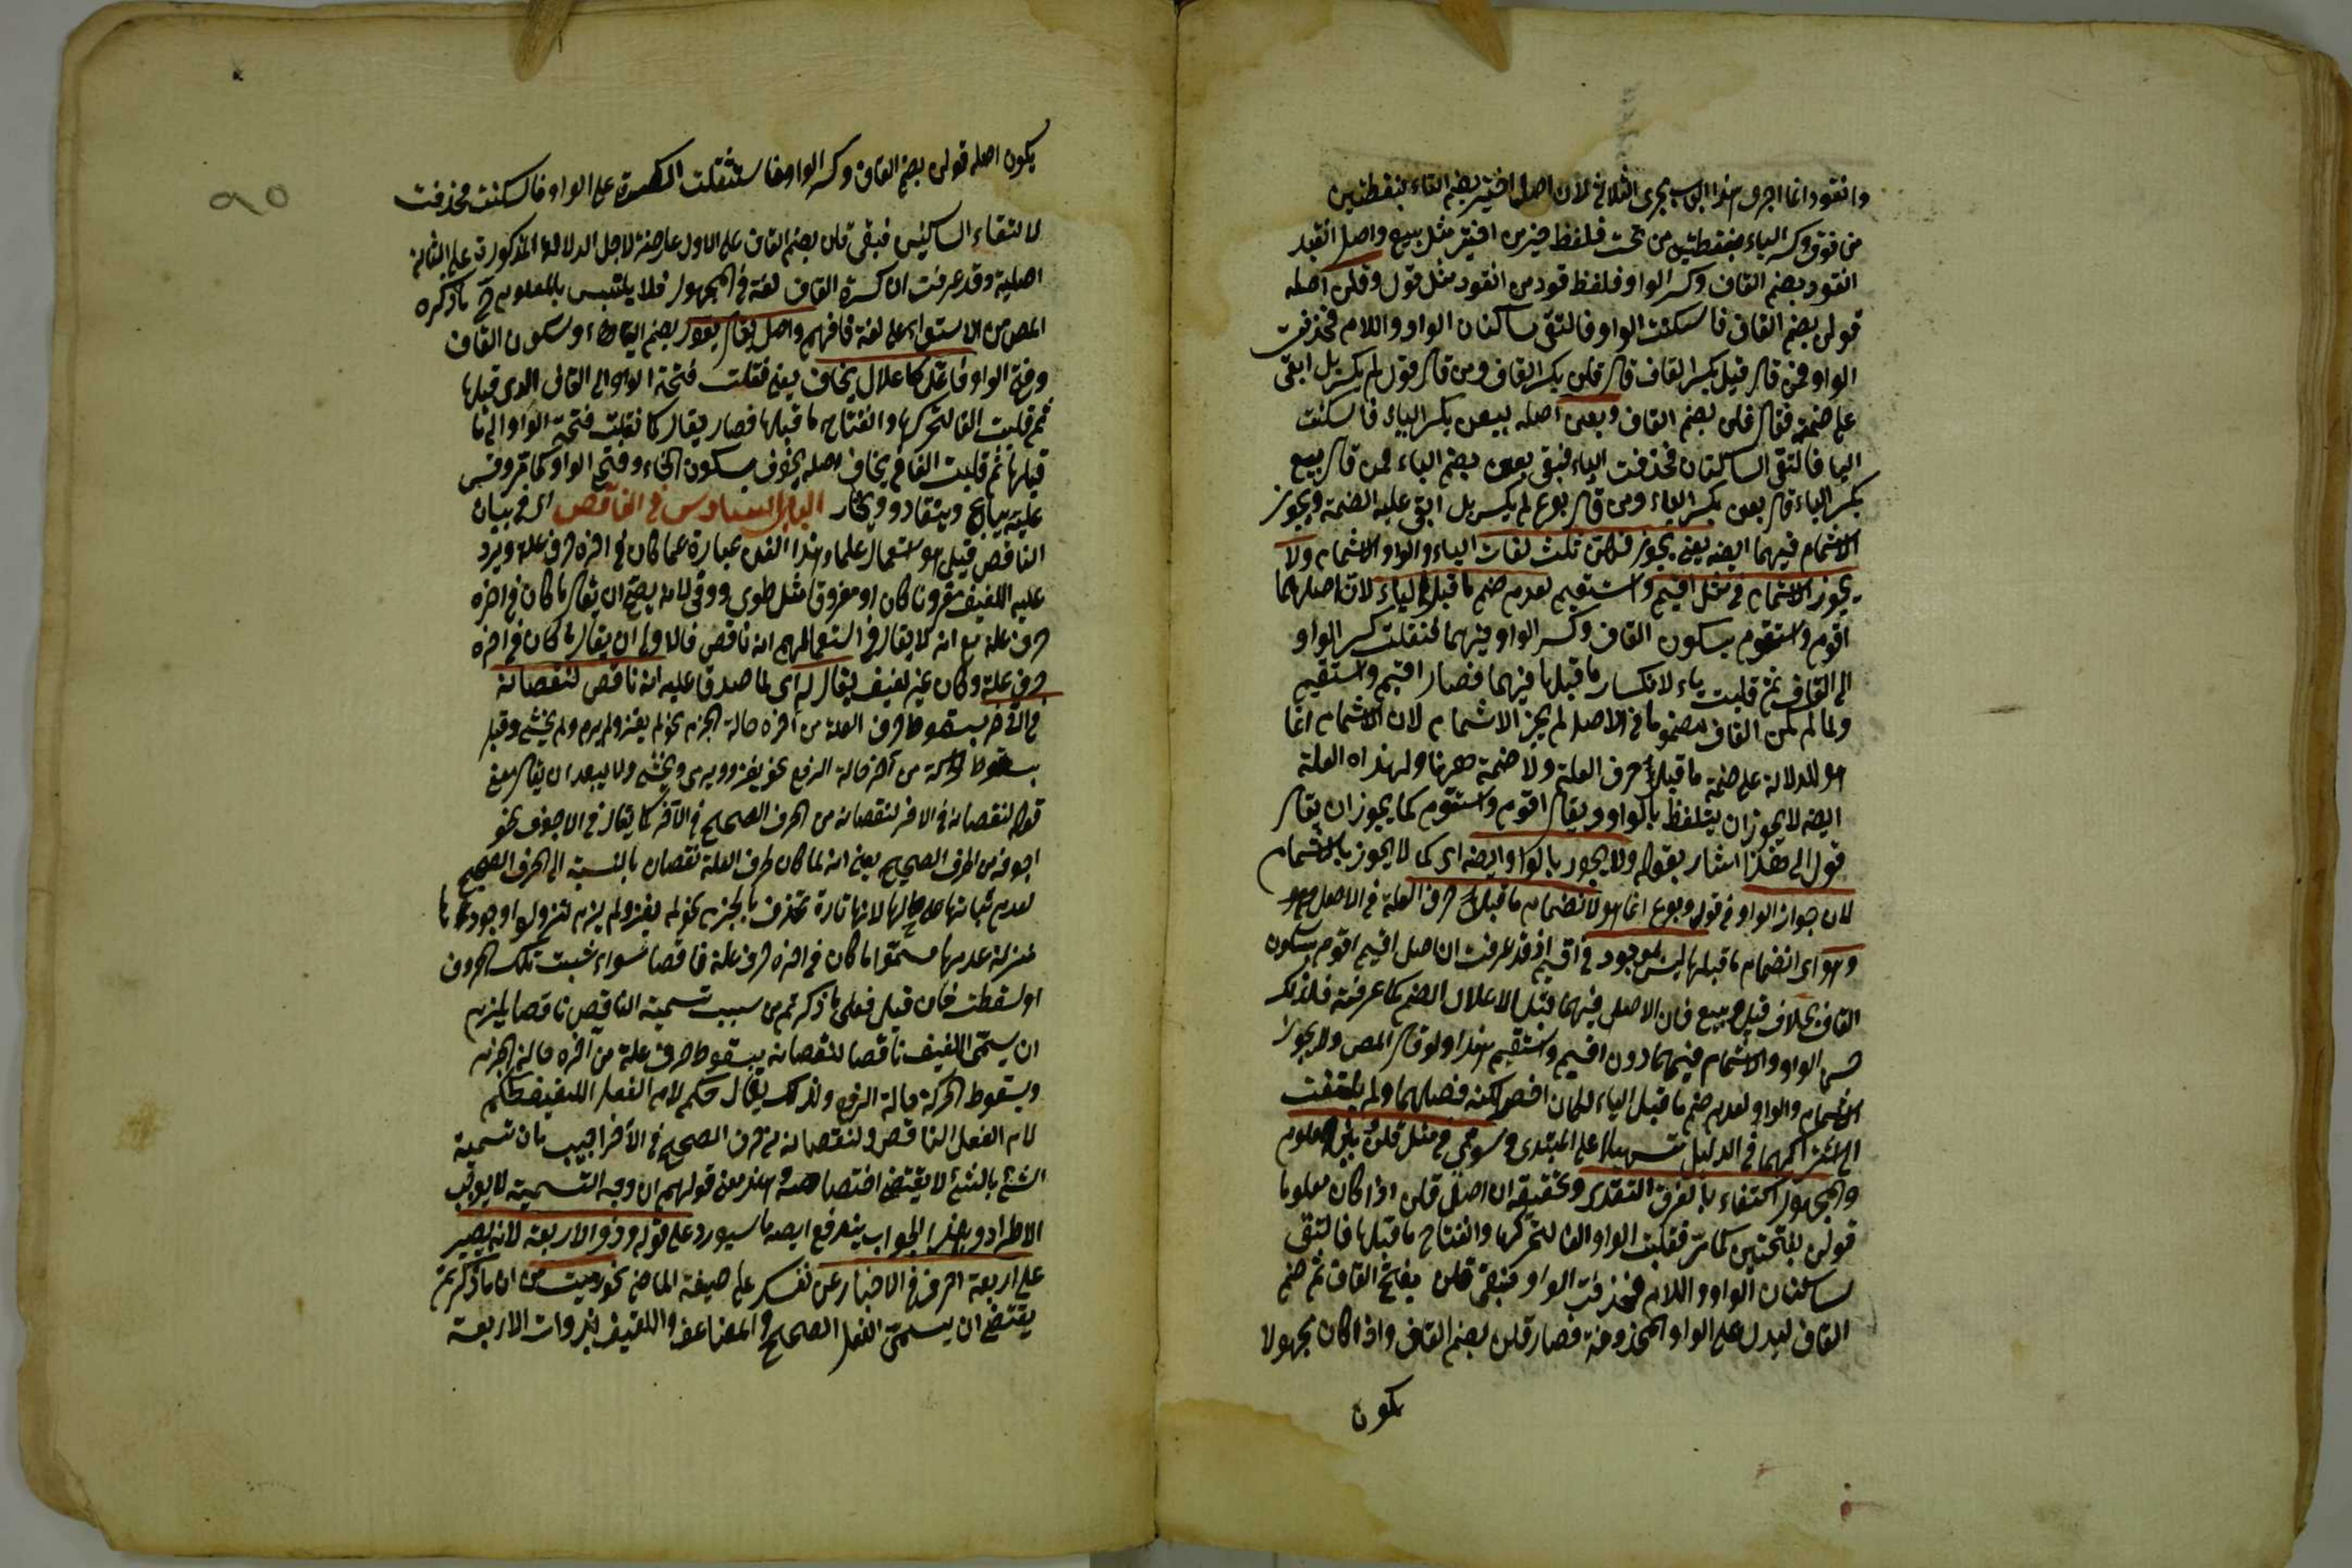 وانقود انما اجرى هذا الباب مجرى الثلاثي لان اصل اختير بضم التاء بنقطتين
من فوق وكسر الياء بنقطتين من تحت فلفظ خير من اختير مثل بيع واصل انقيد
انقود بضم القاف وكسر الواو فلفظ قود من انقود مثل قول وقلن اصله
قولن بضم القاف فاسكنت الواو فالتقى ساكنان الواو واللام فحذفت
الواو فمن قال قيل بكسر القاف قال قلن بكسر القاف ومن قال قول لم يكسر بل ابقى
على ضمته فقال قلن بضم القاف وبعن اصله بيعن بكسر الياء فاسكنت
اليا فالتقى الساكنان فحذفت الياء فبقى بعن بضم الباء فمن قال بيع
بكسر الباء قال بعن بكسر الباء ومن قال بوع لم يكسر بل ابقى عليه الضمة ويجوز
الاشمام فيهما ايضه يعنى يجوز فيهن ثلث لغات الياء والواو والاشمام ولا
يجوز الاشمام فى مثل اقيم واستقيم لعدم ضم ما قبل الياء لان اصلهما
اقوم واستقوم بسكون القاف وكسر الواو فيهما فنقلت كسر الواو
الى القاف ثم قلبت ياء لانكسار ما قبلها فيهما فصار اقيم واستقيم
ولما لم يكن القاف مضموما فى الاصل لم يجز الاشمام لان الاشمام انما
هو للدلالة على ضمة ما قبل حرف العلة ولا ضمة ههنا ولهذه العلة
ايضه لا يجوز ان يتلفظ بالواو ويقال اقوم واستقوم كما يجوز ان يقال
قول الى هذا اشار بقوله ولا يجوز بالواو ايضه اى كما لا يجوز بالاشمام
لان جواز الواو فى قول وبوع انما هو لانضمام ما قبل حرف العلة فى الاصل وهو
وهو اى انضمام ما قبلها ليس بموجود فى اقيم اذ قد عرفت ان اصل اقيم اقوم بسكون
القاف بخلاف قيل وبيع فان الاصل فيهما قبل الاعلال الضم كما عرفته فلذلك
الواو والاشمام فيهما دون اقيم واستقيم هذا ولو قال المص ولا يجوز
الاشمام والواو لعدم ضم ما قبل الياء لكان اخصر لكنه فصلهما ولم يلتفت
الى اشتراكهما فى الدليل تسهيلا على المبتدى وسوى فى مثل قلن وبعن المعلوم
والمجهول اكتفاء بالفرق التقديرى وتحقيقه ان اصل قلن اذا كان معلوما
قولن بفتحتين كما مر فقلبت الواو الفا لتحركها وانفتاح ما قبلها فالتقى
ساكنان الواو واللام فحذفت الواو فبقى قلن بفتح القاف ثم ضم
القاف ليدل على الواو المحذوفة فصار قلن بضم القاف واذا كان مجهولا
يكون
يكون اصله قولن بضم القاف وكسر الواو فاستثقلت الكسرة على الواو فاسكنت فحذفت
لالتقاء الساكنين فبقى قلن بضم القاف على الاول عارضة لاجل الدلالة المذكورة على الثانى
اصلية وقد عرفت ان كسرة القاف لغة فى المجهول فلا يلتبس بالمعلوم ح ما ذكره
المص من الاستواء على لغة فافهم واصل يقال يقول بضم الياء وسكون القاف
وفتح الواو فاعل كاعلال يخاف يعنى نقلت فتحة الواو الى القاف الذى قبلها
ثم قلبت الفا لتحركها وانفتاح ما قبلها فصار يقال كما نقلت فتحة الواو الى ما
قبلها ثم قلبت الفا فى يخاف اصله يخوف بسكون الخاء وفتح الواو كما مر وقس
عليه يباع وينقاد ويختار الباب السادس فى الناقص اى فى بيان
الناقص قيل هو استعمال علماء هذا الفن عبارة عما كان فى اخره حرف علة ويرد
عليه اللفيف مقرونا كان او مفروقا مثل طوى ووقى لانه يصح ان يقال ما كان فى اخره
حرف علة مع انه لا يقال فى استعمالهم انه ناقص فالاولى ان يقال ما كان فى اخره
حرف علة وكان غير لفيف يقال له اى لما صدق عليه انه ناقص لنقصانه
فى الآخر بسقوط حرف العلة من اخره حالة الجزم نحو لم يغز ولم يرم ولم يخش وقيل
بسقوط الحركة من آخره حالة الرفع نحو يغزو ويرمى ويخشى ولا يبعد ان يقال معنى
قوله لنقصانه فى الآخر لنقصانه من الحرف الصحيح فى الآخر كما يقال فى الاجوف نحو
اجوفه من الحرف الصحيح يعنى انه لما كان حرف العلة نقصان بالنسبة الى الحرف الصحيح
لعدم ثباتها على حالها لانها تارة تحذف بالجزم نحو لم يغز ولم يرم تنزيلا وجودها
منزلة عدمها سموا ما كان فى اخره حرف علة ناقصا سواء ثبتت تلك الحروف
او سقطت فان قيل فعلى ما ذكرتم من سبب تسمية الناقص ناقصا يلزم
ان يسمى اللفيف ناقصا لنقصانه بسقوط حرف علة من آخره حالة الجزم
وبسقوط الحركة حالة الرفع ولذلك يقال حكم لام الفعل اللفيف كحكم
لام الفعل الناقص ولنقصانه من حرف الصحيح فى الآخر اجيب بان تسمية
الشئ بالشئ لا يقتضى اختصاصه وهذا معنى قولهم ان وجه التسمية لا يوجب
الاطراد وبهذا الجواب يندفع ايضه ما سيورد على قوله وذو الاربعة لانه يصير
على اربعة احرف فى الاخبار عن نفسك على صيغة الماضى نحو رميت من ان ما ذكرتم
يقتضى ان يسمى الفعل الصحيح والمضاعف واللفيف بذوات الاربعة